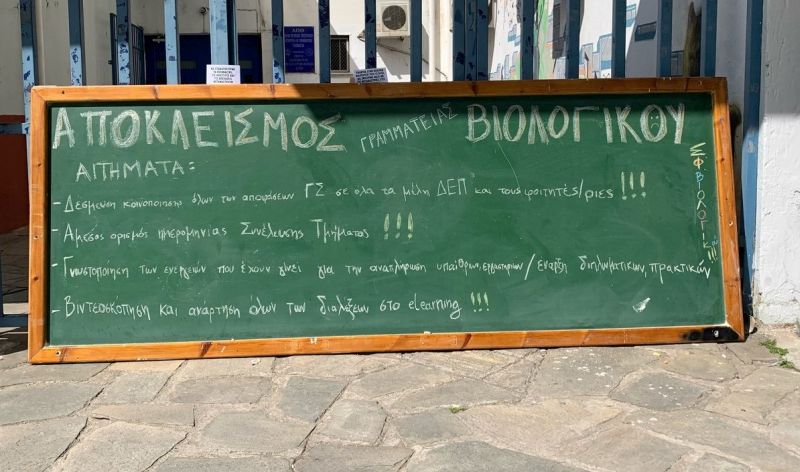 ΑΠΟΚΛΕΙΣΜΟΣ ΓΡΑΜΜΑΤΕΙΑΣ ΒΙΟΛΟΓΙΚΟΥ
ΑΙΤΗΜΑΤΑ:
- Δέσμευση κοινοποίησης όλων των αποφάσεων ΓΣ σε όλα τα μέλη ΔΕΠ και τους φοιτητές/ριες !!!
- Αμεσος ορισμός ημερομηνίας Συνέλευσης Τμήματος !!!
- Γνωστοποίηση των ενεργειών που έχουν γίνει για την αναπλήρωση υπαίθρων, εργαστηρίων / έναρξη διπλωματικών, πρακτικών
- Βιντεοσκόπηση και ανάρτηση όλων των διαλέξεων στο eLearning !!!
ΣΦ ΒΙΟΛΟΓΙΚΟΥ